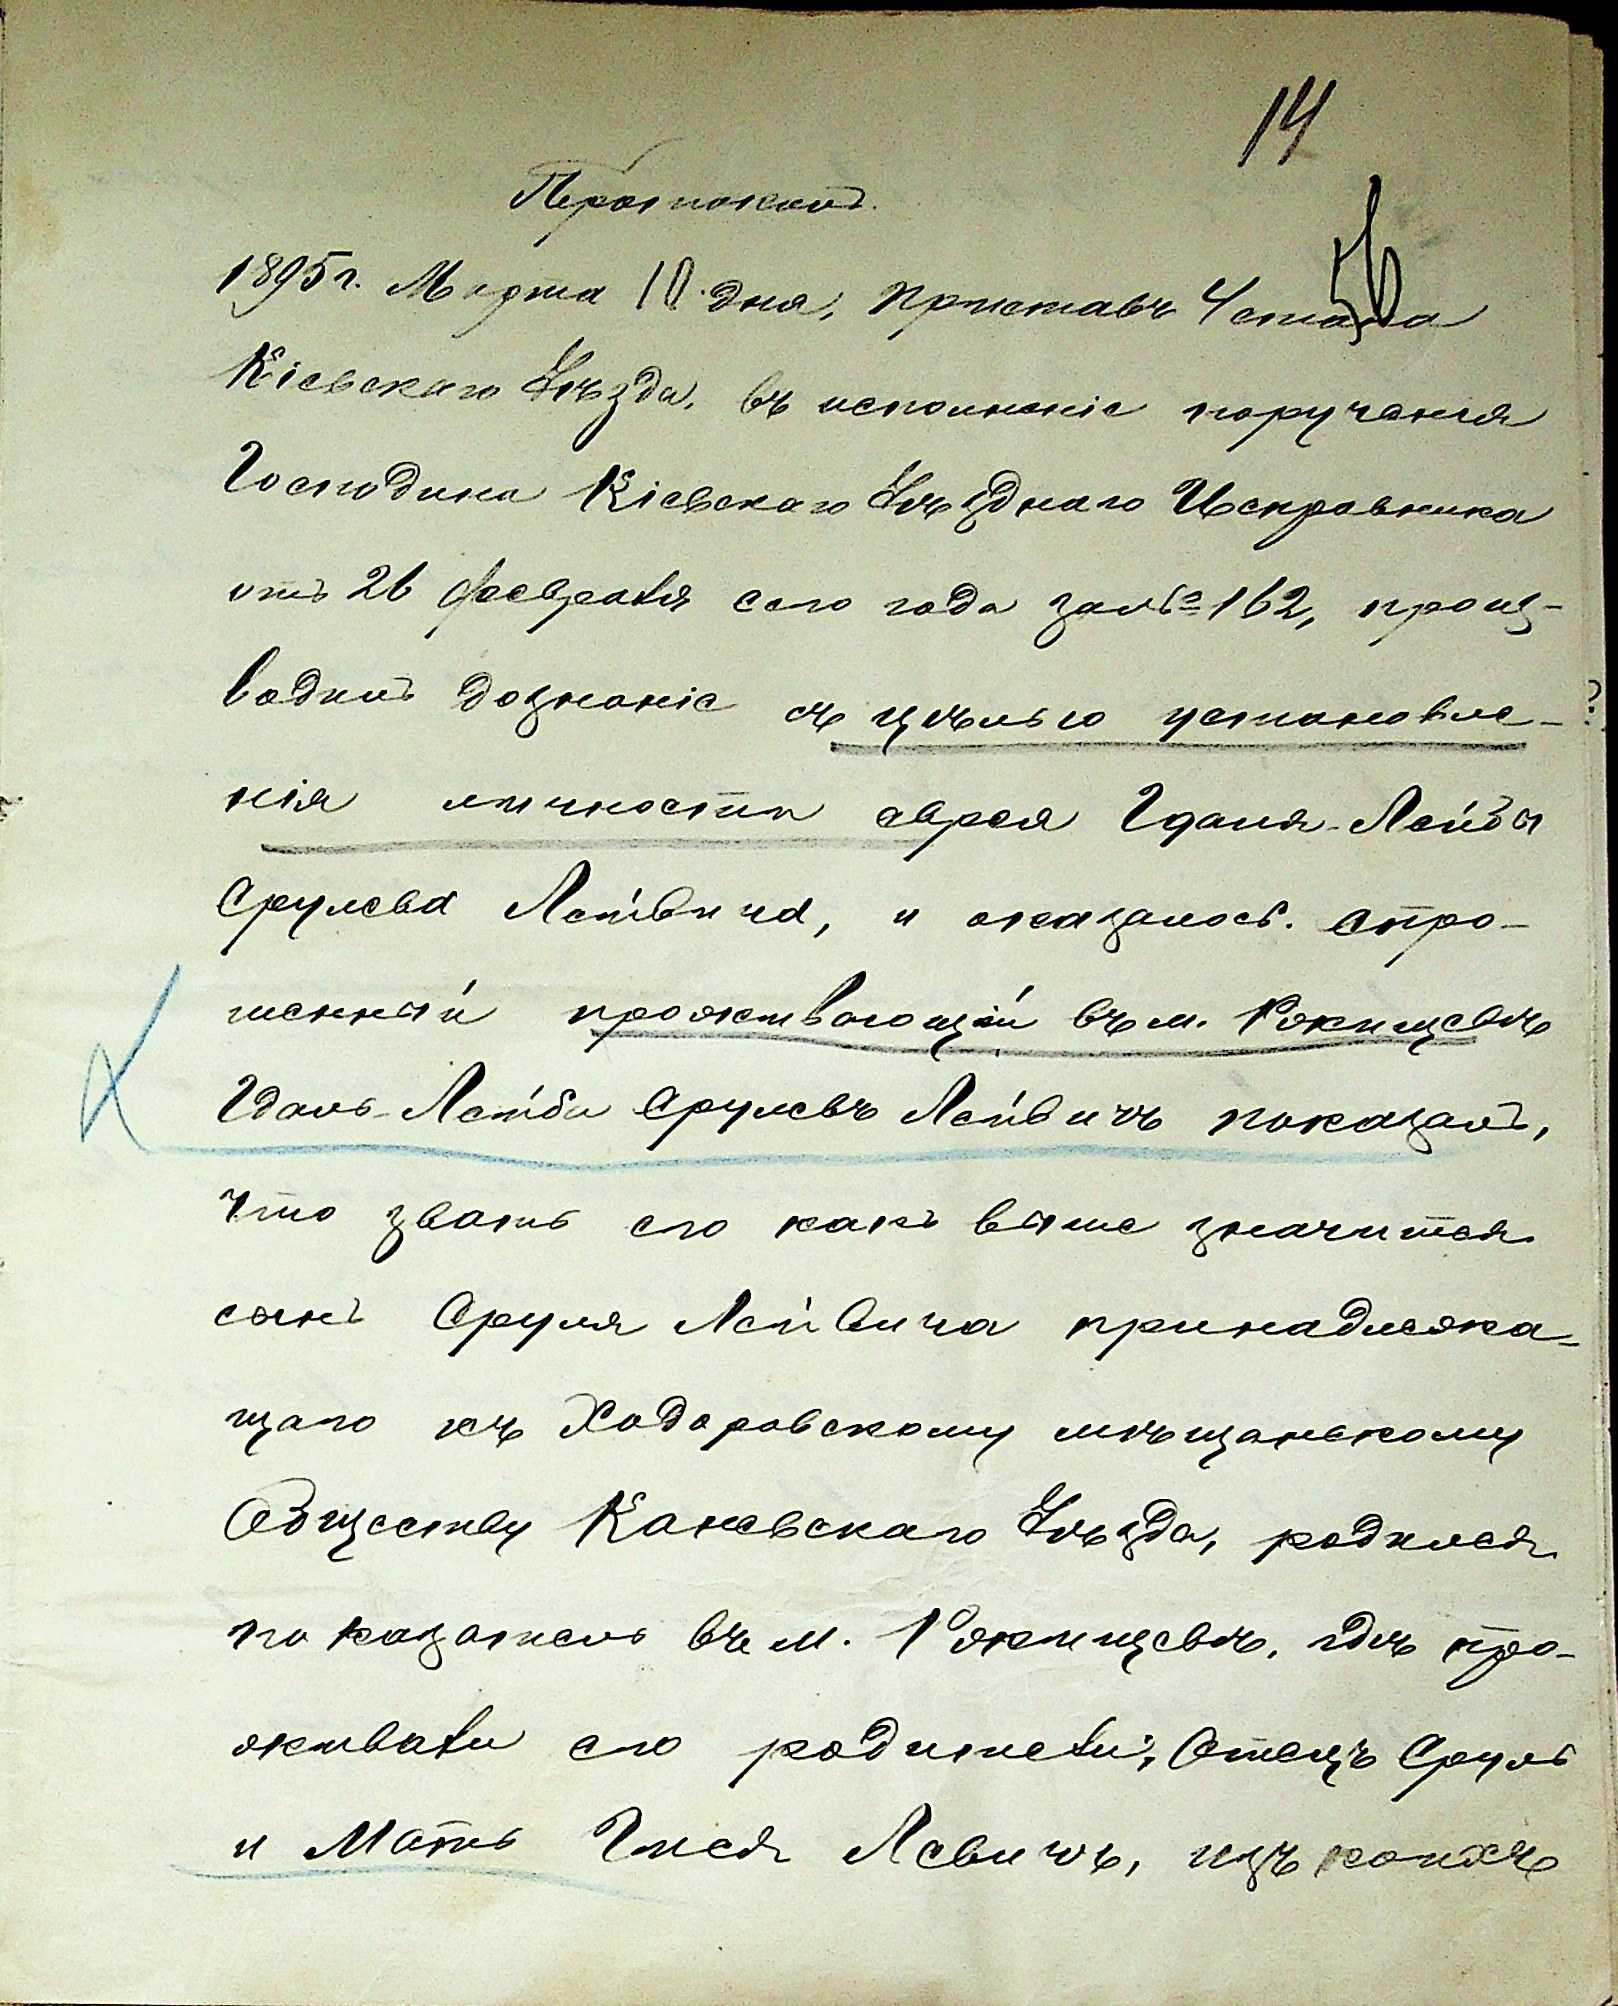 14
Протоколъ.
1895 г. Марта 10 дня, Приставъ 4 стана
Кіевскаго Уѣзда, въ исполненіе порученія
Господина Кіевскаго Уѣзднаго Исправника
отъ 26 февраля сего года за № 162, произ-
водилъ дознаніе съ цѣлью установле- ?
нія личности еврея Гдаля-Лейбы
Срулева Лейвича, и оказалось. Спро-
шенный проживающій въ м. Ржищевѣ
Гдаль-Лейба Срулевъ Лейвичъ показалъ,
что звать его какъ выше значится
сынъ Сруля Лейвича принадлежа-
щаго къ Ходоровскому мѣщанскому
Обществу Каневскаго Уѣзда, родился
показатель въ м. Ржищевѣ, гдѣ про-
живали его родители; Отецъ Сруль
и Мать Гися Левичъ, изъ коихъ